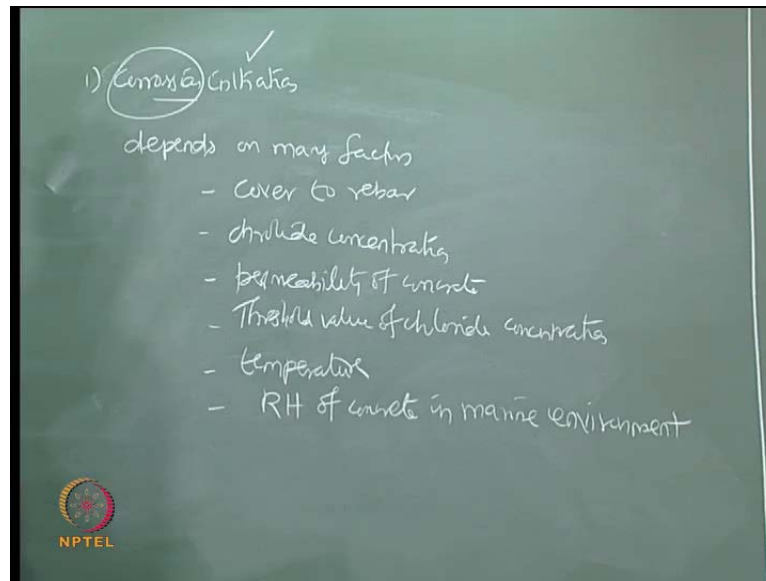 1) Corrosion initiation
depends on many factors
- cover to rebar
- chloride concentration
- permeability of concrete
- Threshold value of chloride concentration
- temperature
- RH of concrete in marine environment
NPTEL